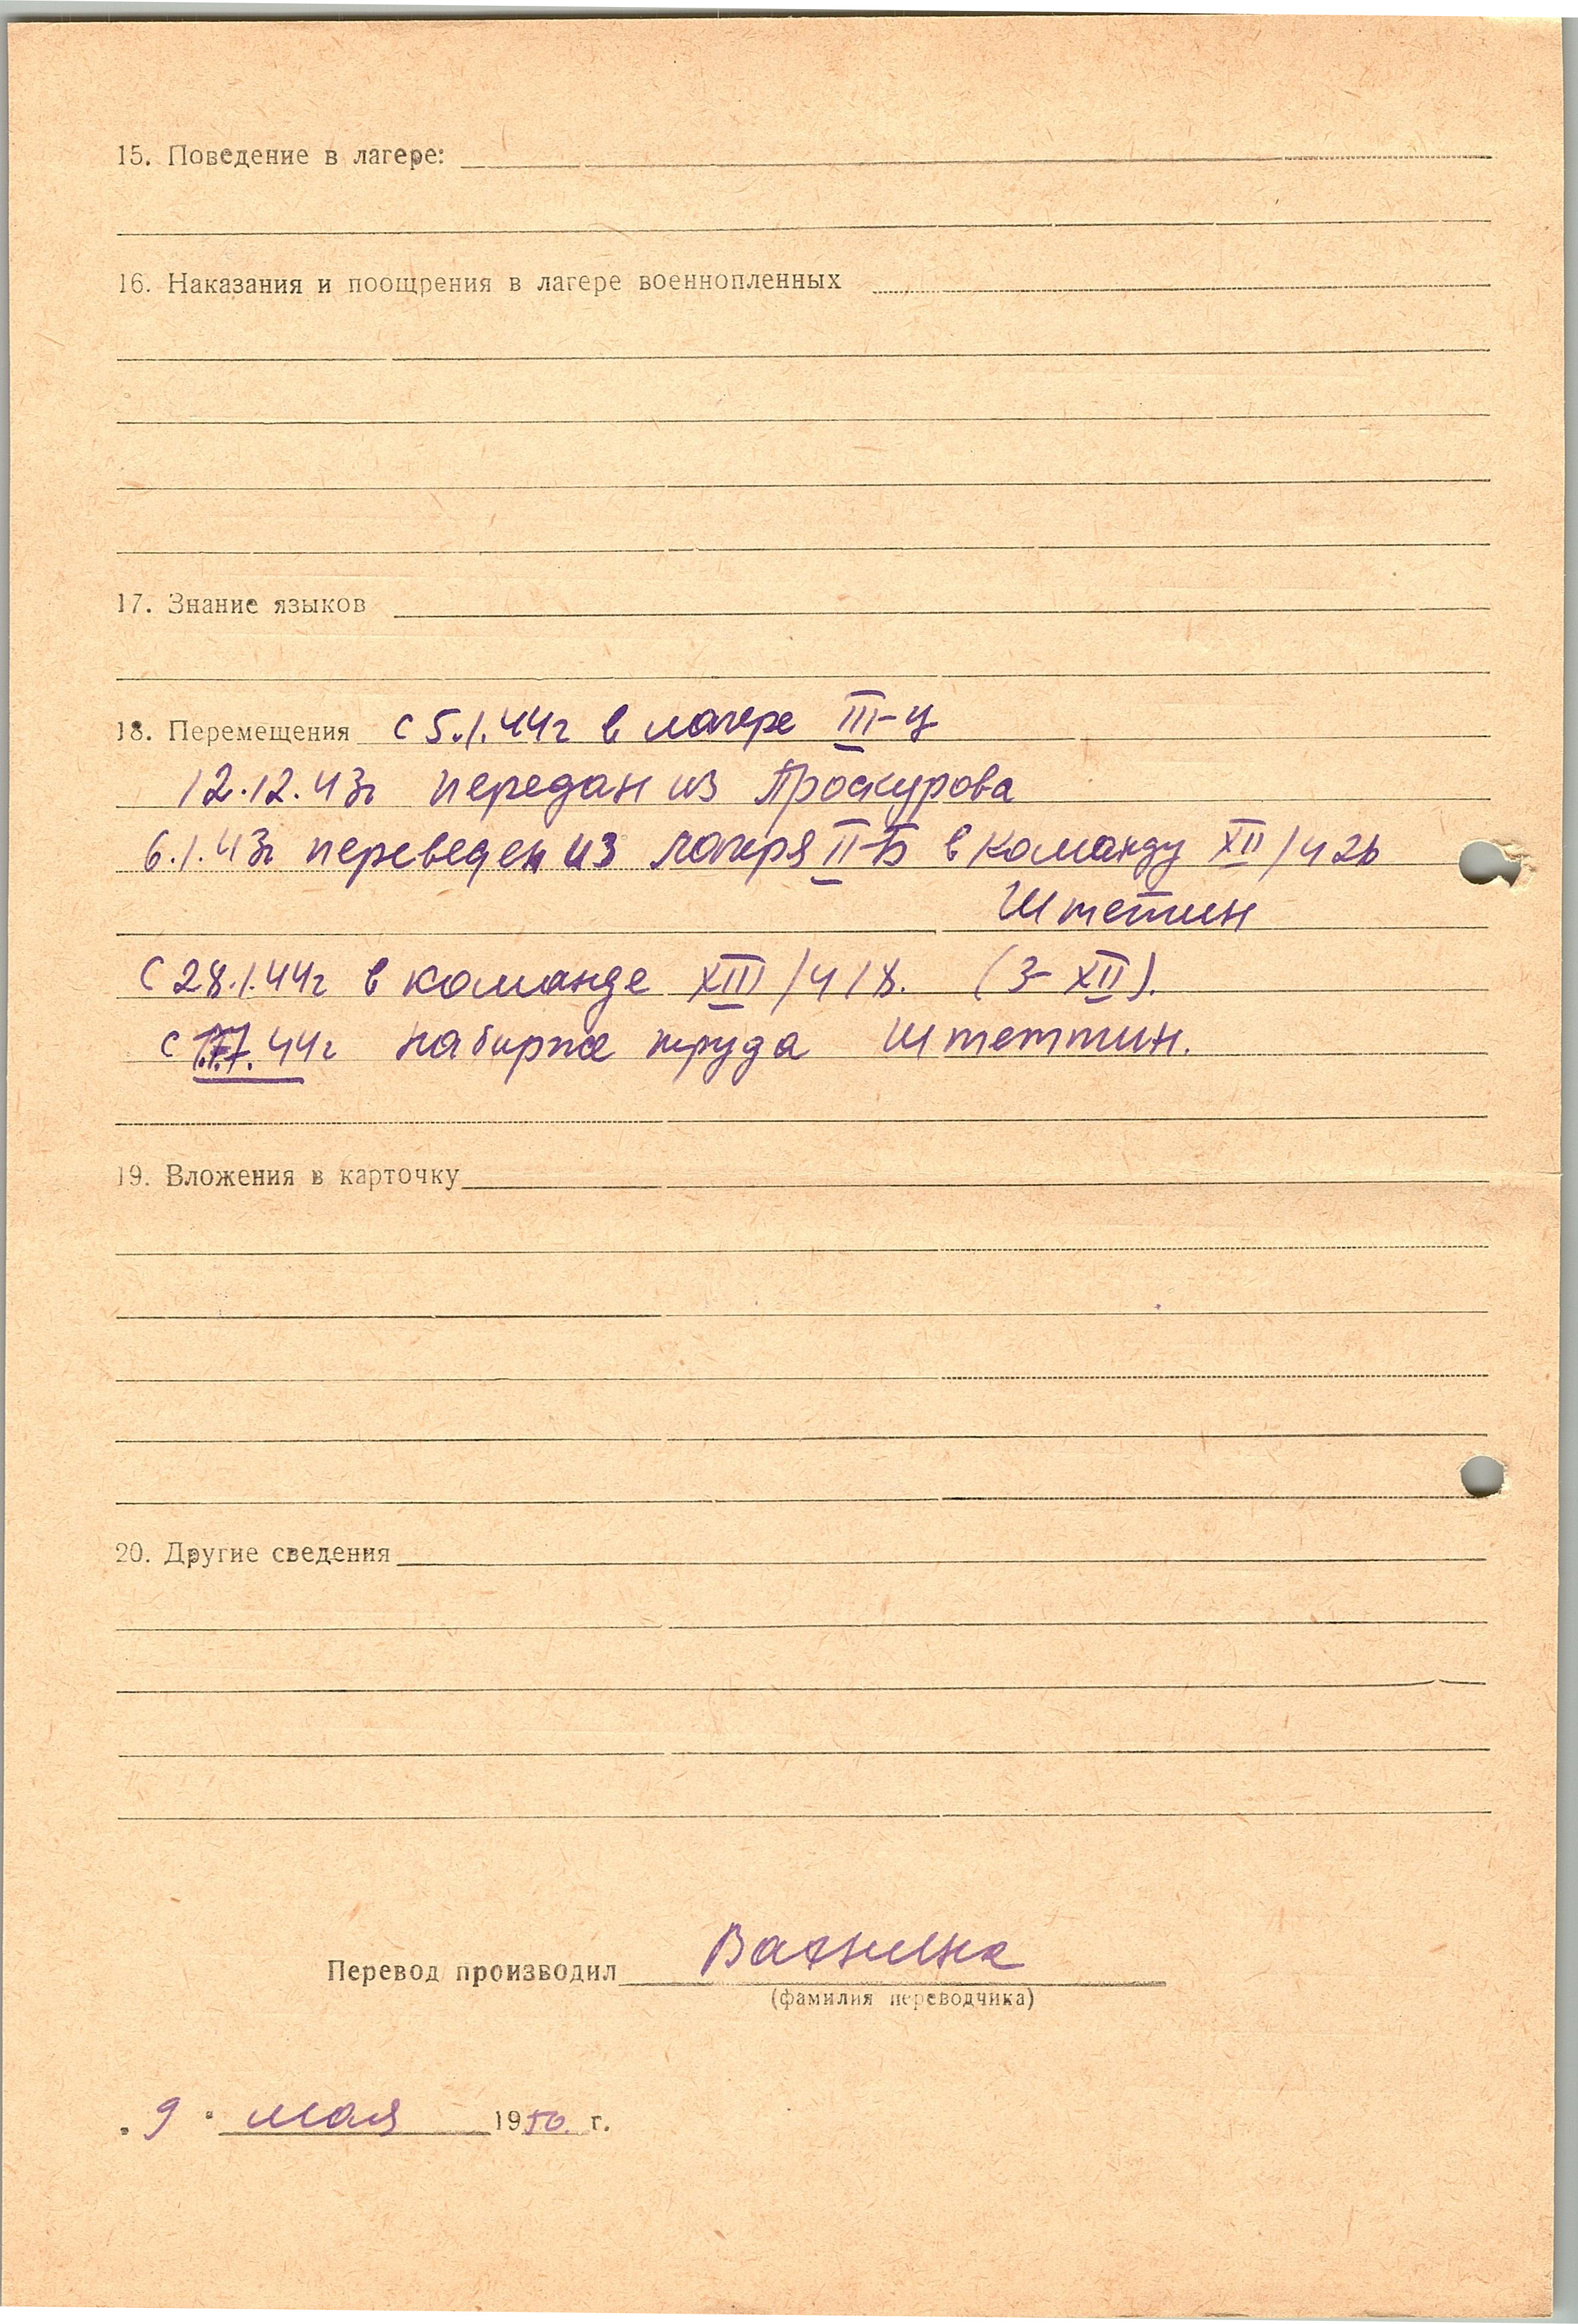 15. Поведение в лагере:
16. Наказания и поощрения в лагере военнопленных
17. Знание языков
18. Перемещения с 5.1.44г в лагере III-Ц
12.12.43г передан из Проскурова
6.1.43г переведен из лагеря II-Б в команду XII/426
Штетин
с 28.1.44г в команде XIII/418. (3-XII).
с 17.7.44г на бирже труда Штеттин.
19. Вложения в карточку
20. Другие сведения
Перевод производил
(фамилия переводчика)
"9" мая 1950 г.